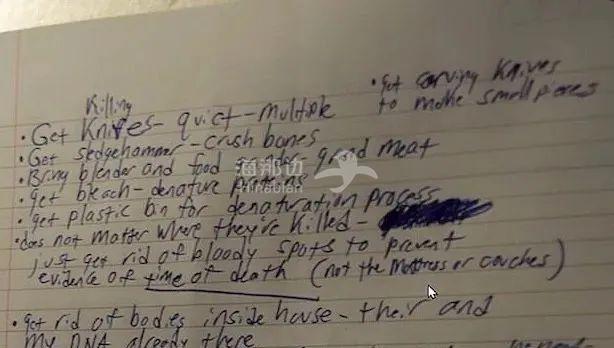 Killing
• Get Knives - quiet - multiple
• Get carving Knives
to make small pieces
• Get sledgehammer - crush bones
• Bring blender and food grinder grind meat
• get bleach - denature proteins
• get plastic bin for denaturation process
• does not matter where they're killed -
just get rid of bloody spots to prevent
evidence of time of death (not the mattress or couches)
• get rid of bodies inside house - their and
my DNA already there
海那边
Hinabian